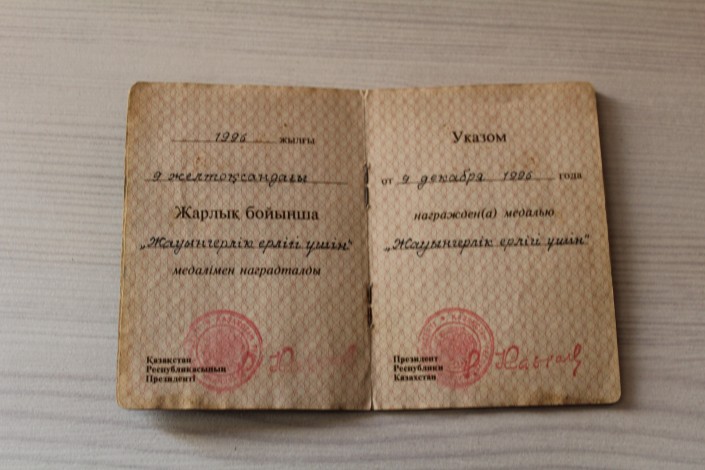 1996 жылғы
9 желтоқсандағы
Жарлық бойынша
„Жауынгерлік ерлігі үшін"
медалімен наградталды
Қазақстан
Республикасының
Президенті
Указом
от 9 декабря 1996 года
награжден(а) медалью
„Жауынгерлік ерлігі үшін"
Президент
Республики
Казахстан